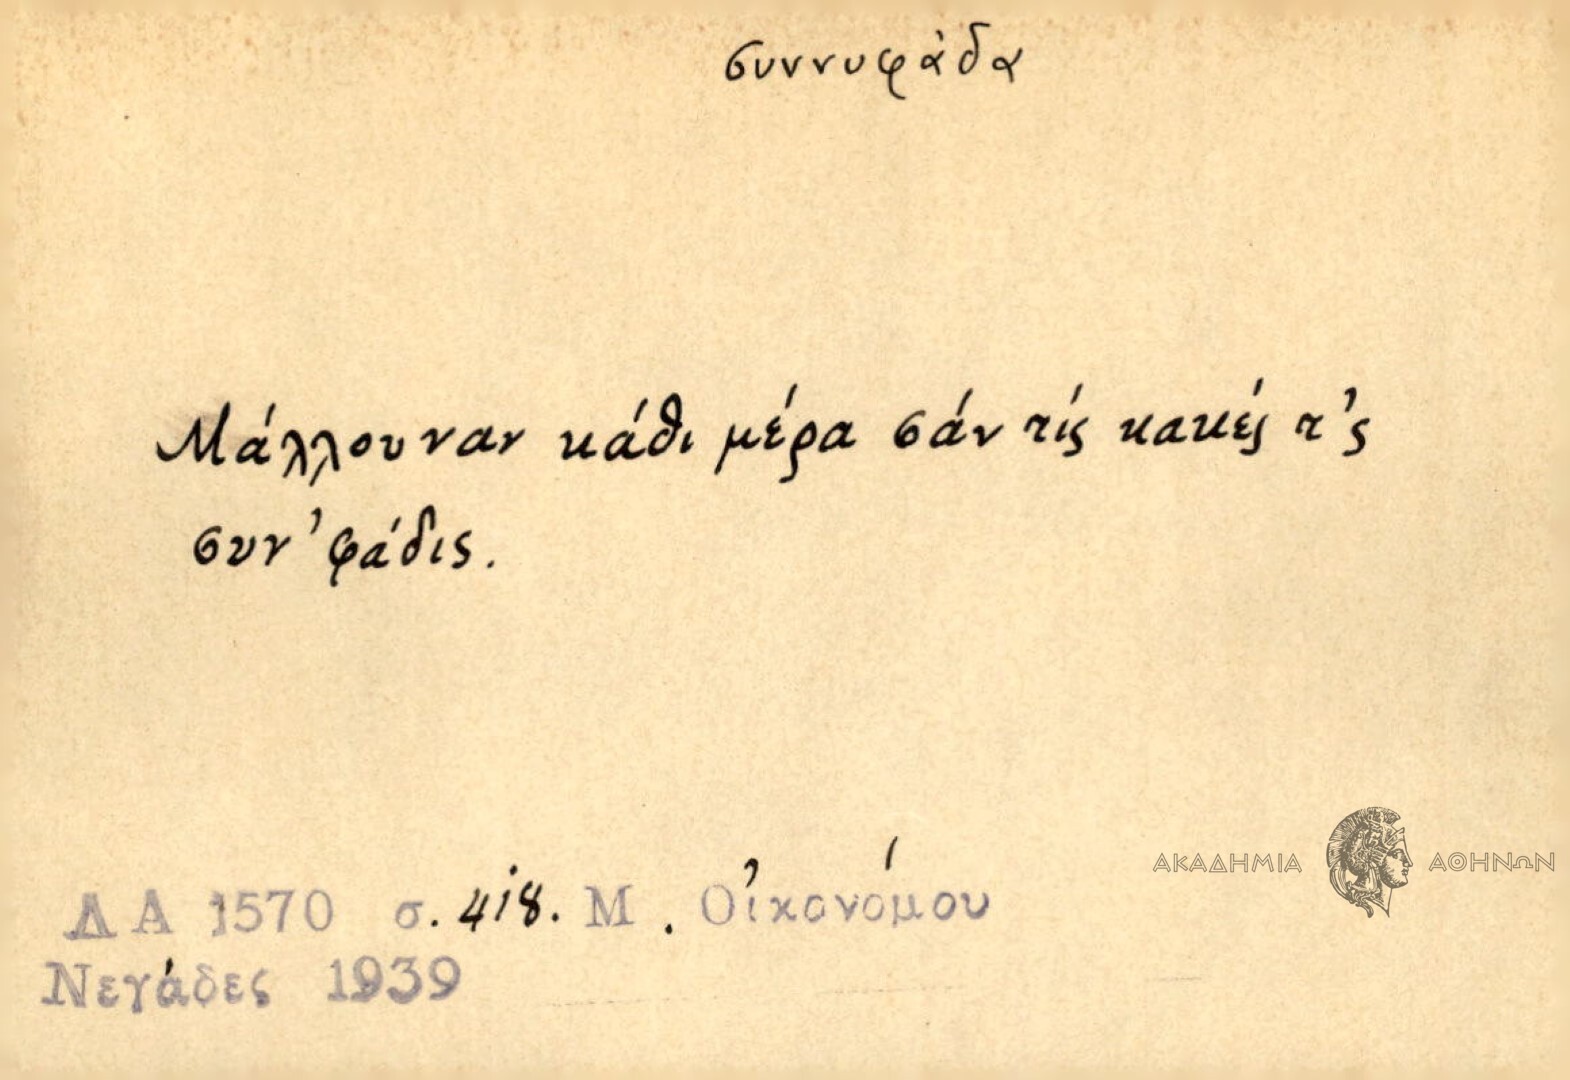 συννυφάδα
Μάλλουναν κάθι μέρα σάν τίς κακές τ'ς
συν'φάδις.
ΔΑ 1570 σ. 418. Μ. Οἰκονόμου
Νεγάδες 1939
ΑΚΑΔΗΜΙΑ ΑΘΗΝΩΝ